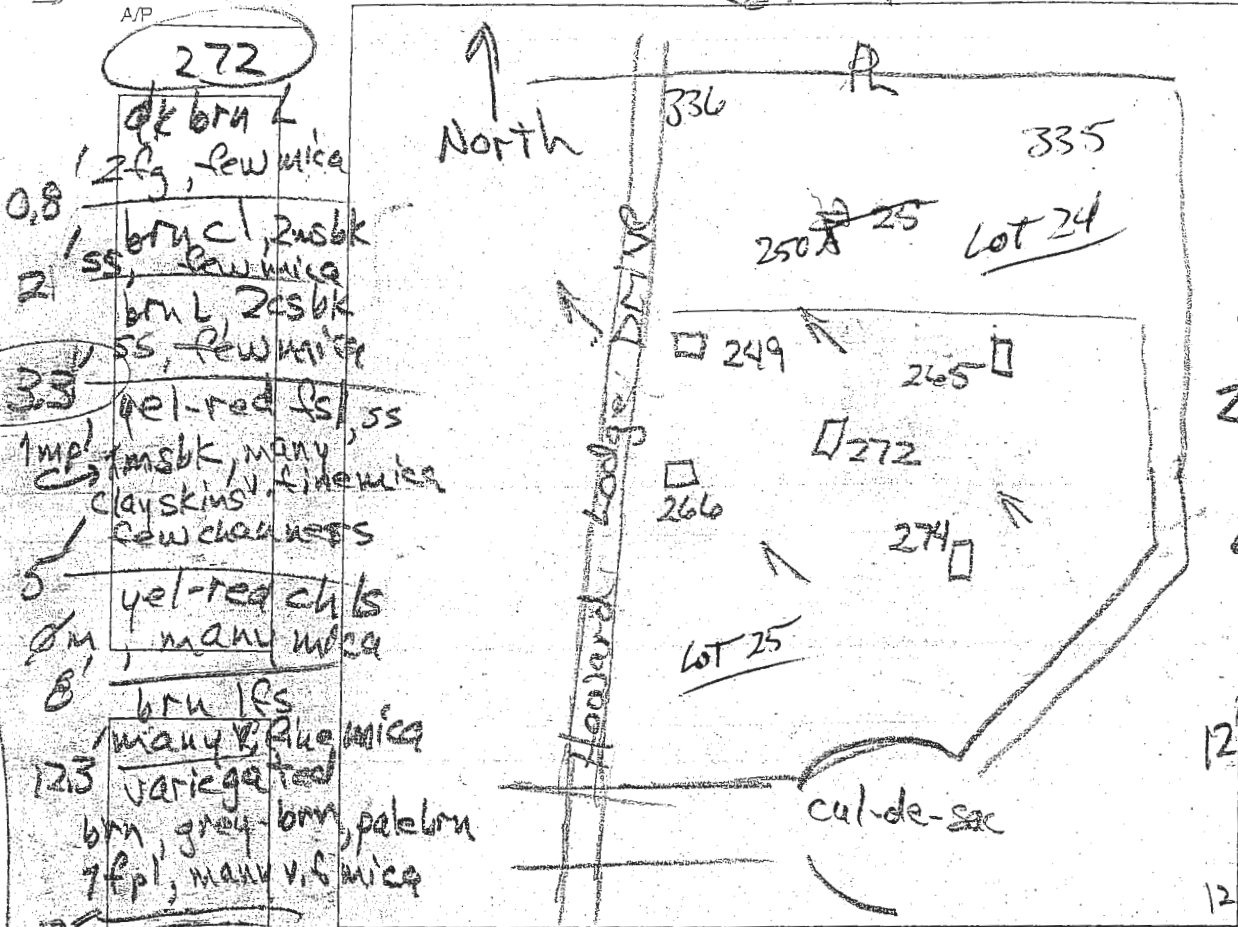 A/P
272
dk brn L
2fg, few mica
0.8'
brn cl, 2msbk
ss, few mica
2'
brn L, 2csbk
ss, few mica
3.3'
yel-red fsl, ss
1mp' 1msbk, many
clayskins v. fine mica
few channers
5'
yel-red ch ls
Øm, many mica
8'
brn lfs
many v. fine mica
12.3'
variegated
brn, grey-brn, pale brn
fpl, many v.f mica
North
PL
336
335
25
250A
Lot 24
Howard Lodge Drive
249
265
272
266
274
Lot 25
cul-de-sac
2
12'
12